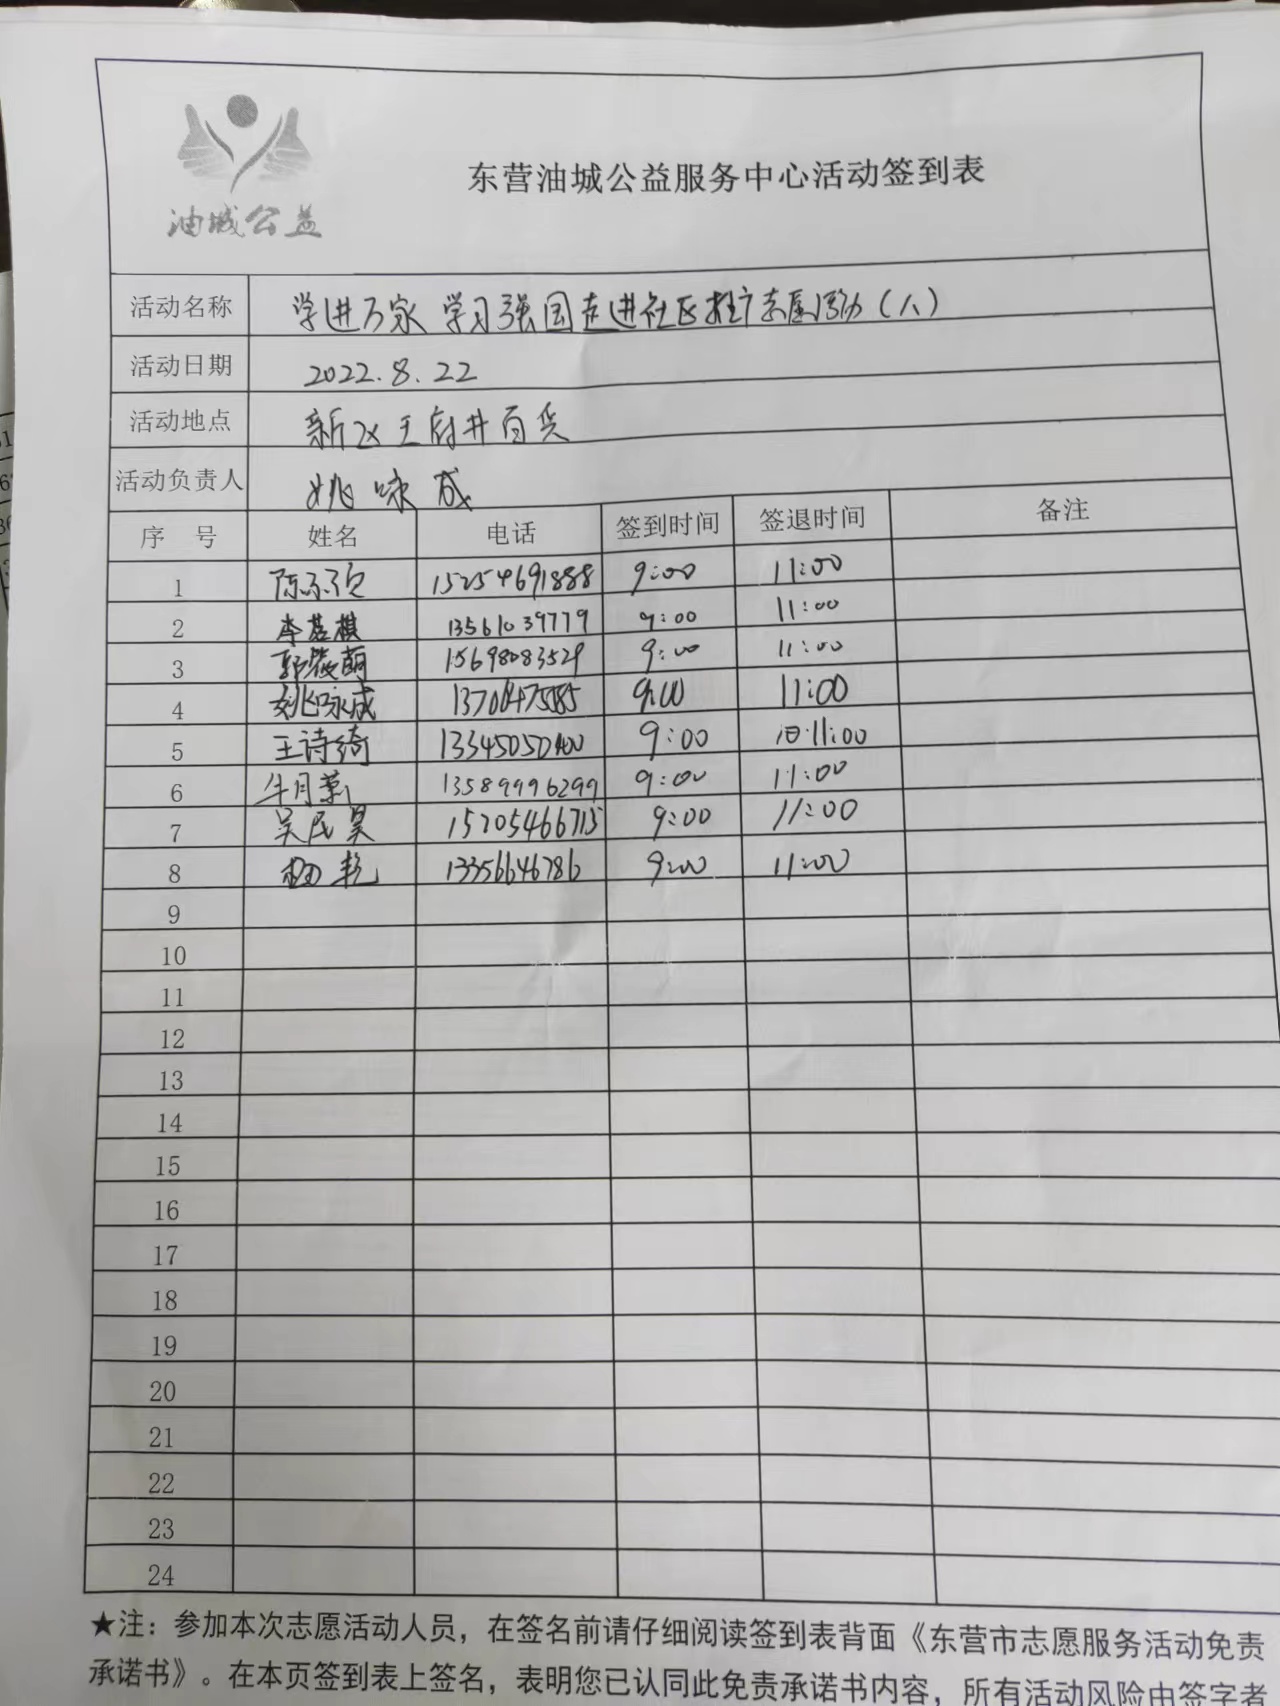 油城公益
东营油城公益服务中心活动签到表
活动名称 学进万家 学习强国走进社区推广志愿活动（八）
活动日期 2022.8.22
活动地点 新区王府井百货
活动负责人 姚咏成
序 号 姓名 电话 签到时间 签退时间 备注
1 15254691888 9:00 11:00
2 李茗棋 13561039779 9:00 11:00
3 郭筱萌 15698083529 9:00 11:00
4 姚咏成 9:00 11:00
5 王诗绮 9:00 11:00
6 牛月 13589996299 9:00 11:00
7 吴民昊 15205466715 9:00 11:00
8 13356646786 9:00 11:00
9
10
11
12
13
14
15
16
17
18
19
20
21
22
23
24
★注：参加本次志愿活动人员，在签名前请仔细阅读签到表背面《东营市志愿服务活动免责
承诺书》。在本页签到表上签名，表明您已认同此免责承诺书内容，所有活动风险由签字者